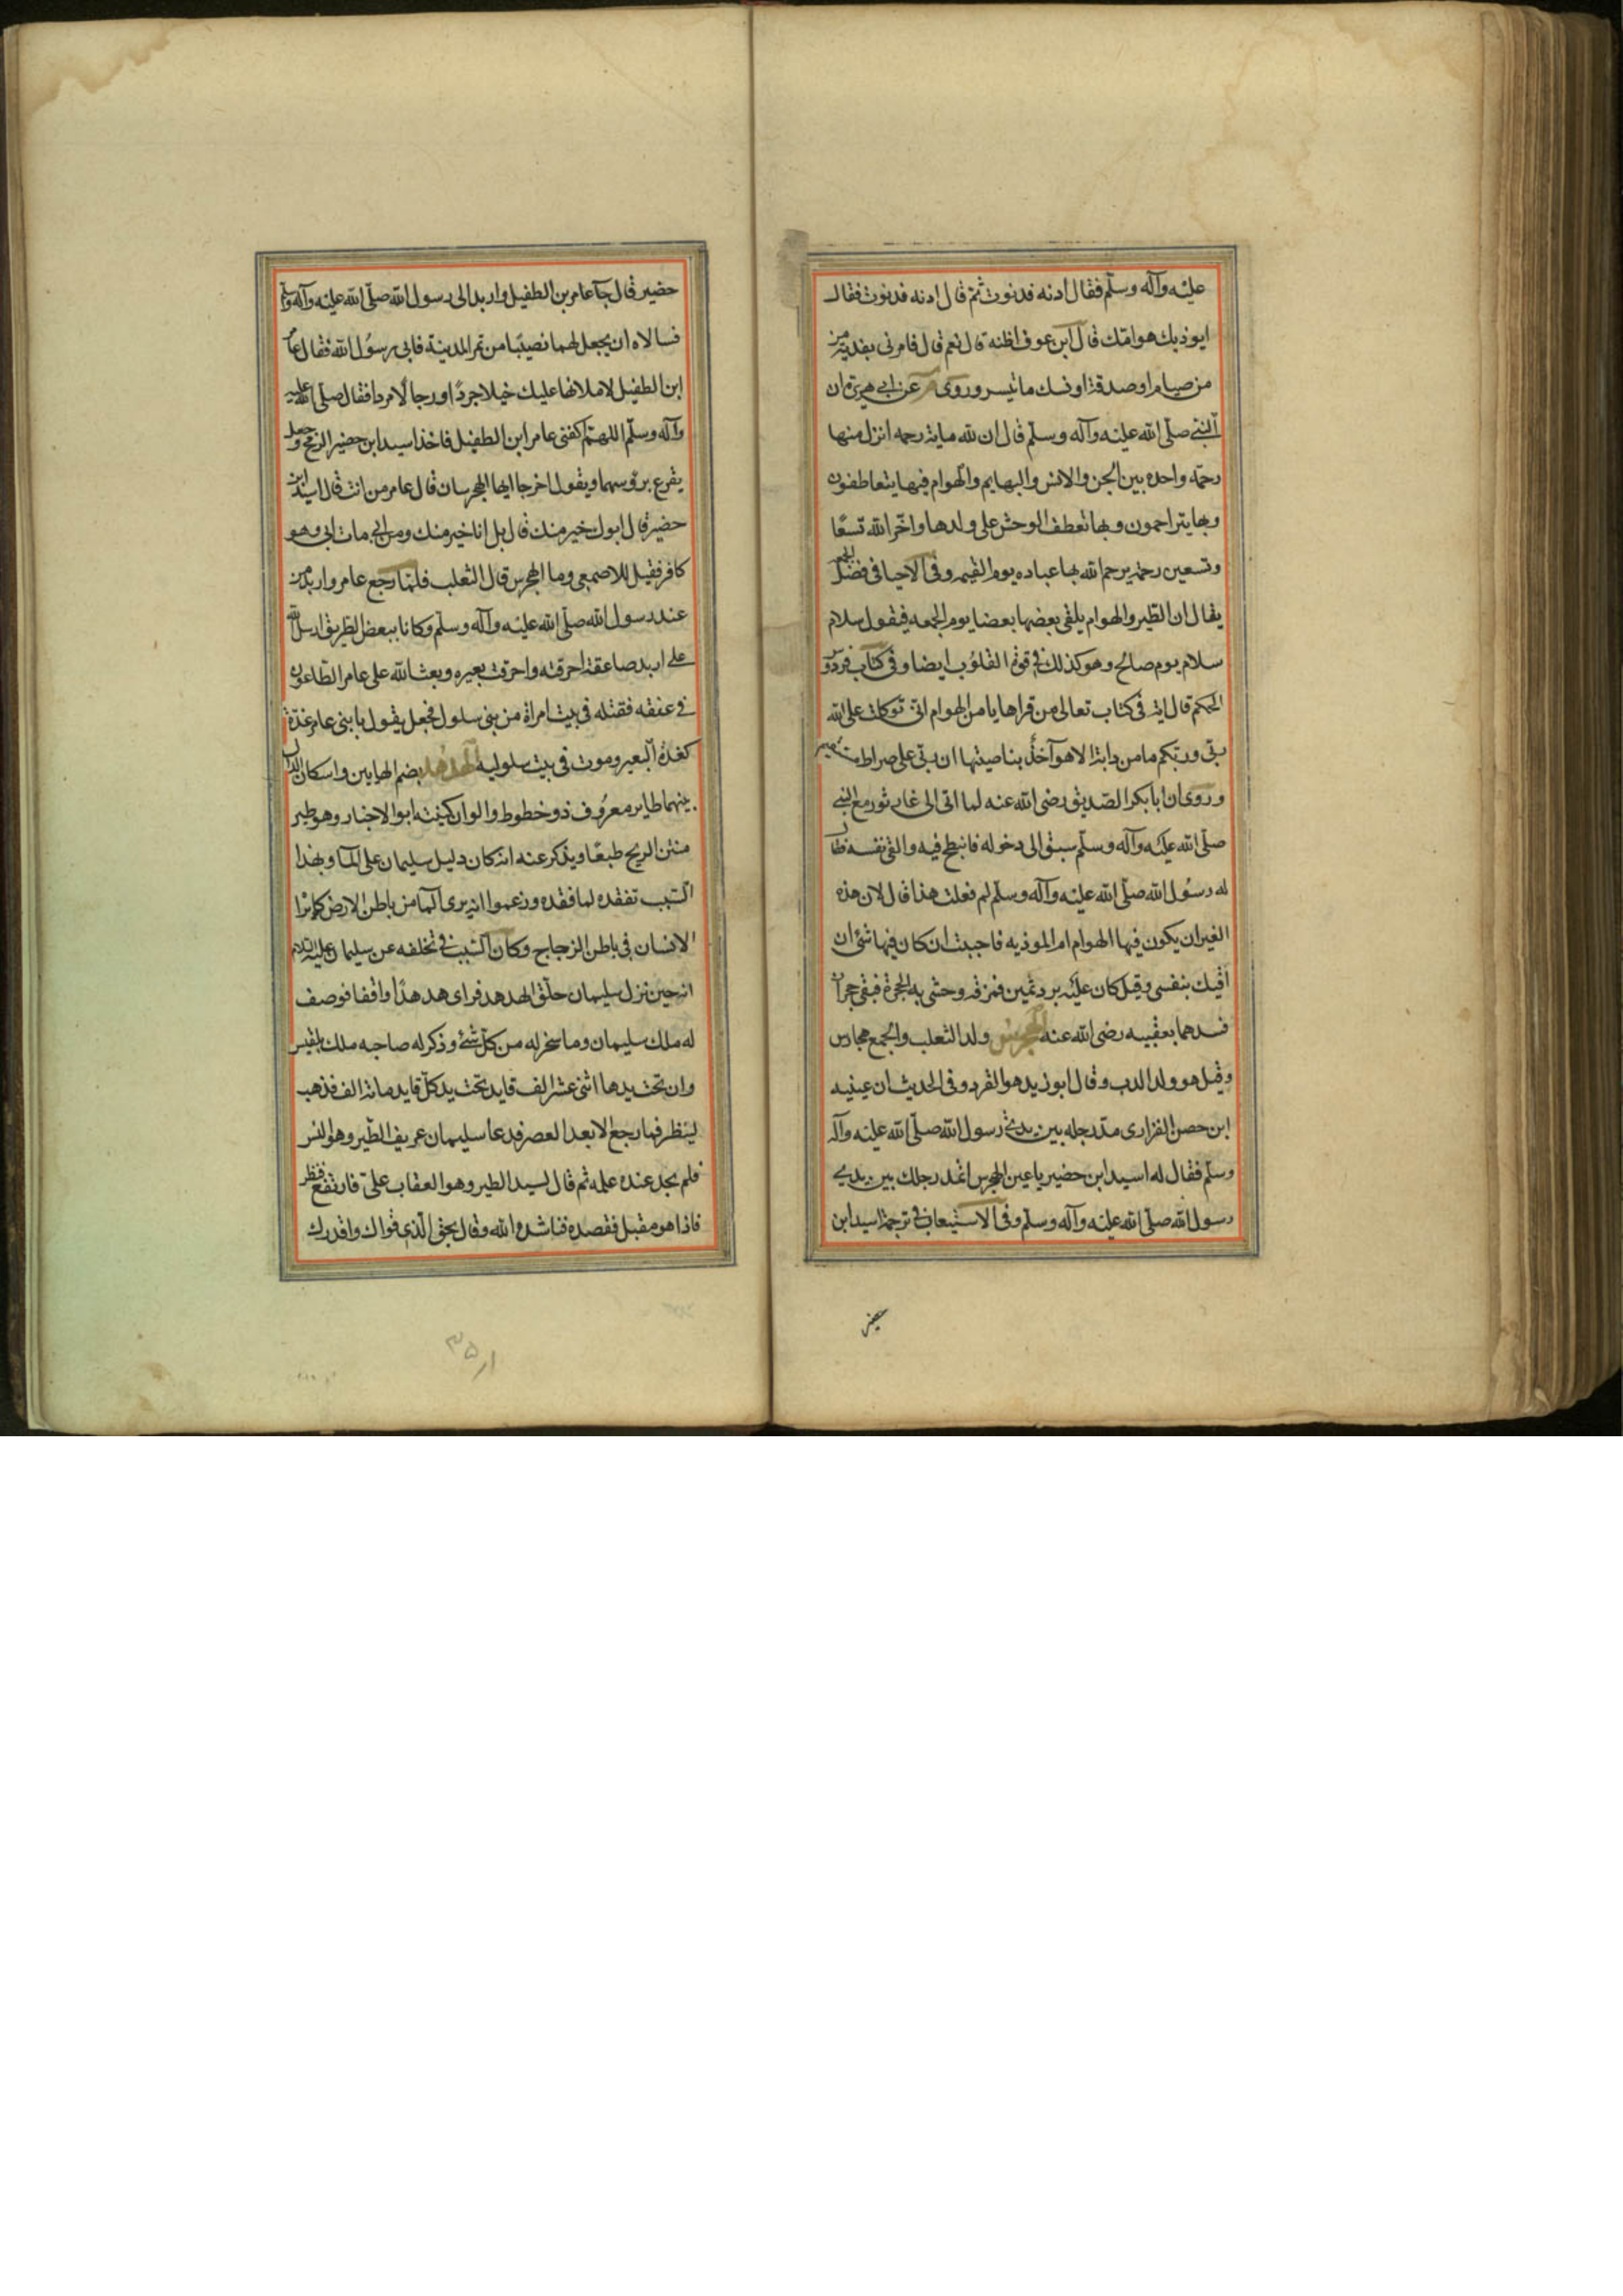 عليه وآله وسلم فقال ادنه فدنوت ثم قال ادنه فدنوت فقال
ايوذيك هوامك قال ابن عوف اظنه قال نعم قال فامرنى بفدية من
من صيام او صدقة او نسك ما تيسر وروى عن ابى هريرة ان
النبى صلى الله عليه وآله وسلم قال ان لله ماية رحمه انزل منها
رحمة واحده بين الجن والانس والبهايم والهوام فبها يتعاطفون
وبها يتراحمون وبها تعطف الوحش على ولدها واخر الله تسعًا
وتسعين رحمة يرحم الله بها عباده يوم القيمه وفى الاحيا فى فضل
يقال ان الطير والهوام يلقى بعضها بعضا يوم الجمعه فيقول سلام
سلام يوم صالح وهو كذلك فى قوت القلوب ايضا وفى كتاب فردوس
الحكم قال اية فى كتاب تعالى من قراها يامن الهوام انى توكلت على الله
ربى وربكم ما من دابة الا هو آخذ بناصيتها ان ربى على صراط مستقيم
وروى ان ابا بكر الصديق رضى الله عنه لما اتى الى غار ثور مع النبى
صلى الله عليه وآله وسلم سبق الى دخوله فانبطح فيه والقى نفسه فقال
له رسول الله صلى الله عليه وآله وسلم لم فعلت هذا قال لان هذه
الغيران يكون فيها الهوام الموذيه فاحببت ان كان فيها شئ ان
اقيك بنفسى وقيل كان عليه برد ثمين فمزقه وحشى به الجحرة فبقى جحران
فسدهما بعقبيه رضى الله عنه الهجرس ولد الثعلب والجمع هجارس
وقيل هو ولد الدب وقال ابو زيد هو القرد وفى الحديث ان عينيه
ابن حصن الفزارى مد رجله بين يدى رسول الله صلى الله عليه وآله
وسلم فقال له اسيد ابن حضير يا عين الهجرس اتمد رجلك بين يدى
رسول الله صلى الله عليه وآله وسلم وفى الاستيعاب فى ترجمة اسيد ابن
حضير
حضير قال جآ عامر بن الطفيل واربد الى رسول الله صلى الله عليه وآله وسلم
فسالاه ان يجعل لهما نصيبًا من تمر المدينة فابى رسول الله فقال عامر
ابن الطفيل لاملانها عليك خيلا جردًا ورجالًا مردا فقال صلى الله عليه
وآله وسلم اللهم اكفنى عامر ابن الطفيل فاخذ اسيد ابن حضير الرمح وجعل
يقرع بروسهما ويقول اخرجا ايها الهجرسان قال عامر من انت قال اسيد ابن
حضير قال ابوك خير منك قال بل انا خير منك ومن ابى مات ابى وهو
كافر فقيل للاصمعى وما الهجرس قال الثعلب فلما رجع عامر واربد من
عند رسول الله صلى الله عليه وآله وسلم وكانا ببعض الطريق ارسل الله
على اربد صاعقة احرقته واحرقت بعيره وبعث الله على عامر الطاعون
فى عنقه فقتله فى بيت امراة من بنى سلول فجعل يقول يا بنى عامر غدة
كغدة البعير وموت فى بيت سلوليه الهدهد بضم الهايين واسكان الدال
بينهما طاير معروف ذو خطوط والوان كنيته ابو الاخبار وهو طير
منتن الريح طبعًا ويذكر عنه انه كان دليل سليمان على المآ وبهذا
السبب تفقده لما فقده وزعموا انه يرى المآ من باطن الارض كما يرا
الانسان فى باطن الزجاج وكان السبب فى تخلفه عن سليمان عليه السلام
انه حين نزل سليمان حلق الهدهد فراى هدهدًا واقفا فوصف
له ملك سليمان وما سخر له من كل شئ وذكر له صاحبه ملك بلقيس
وان تحت يدها اثنى عشر الف قايد تحت يد كل قايد مائة الف فذهب
لينظر فما رجع الا بعد العصر فدعا سليمان عريف الطير وهو النسر
فلم يجد عنده علمه ثم قال لسيد الطير وهو العقاب على فارتفع فنظر
فاذا هو مقبل فقصده فناشده الله وقال بحق الذى قواك واقدرك
٣٥ار